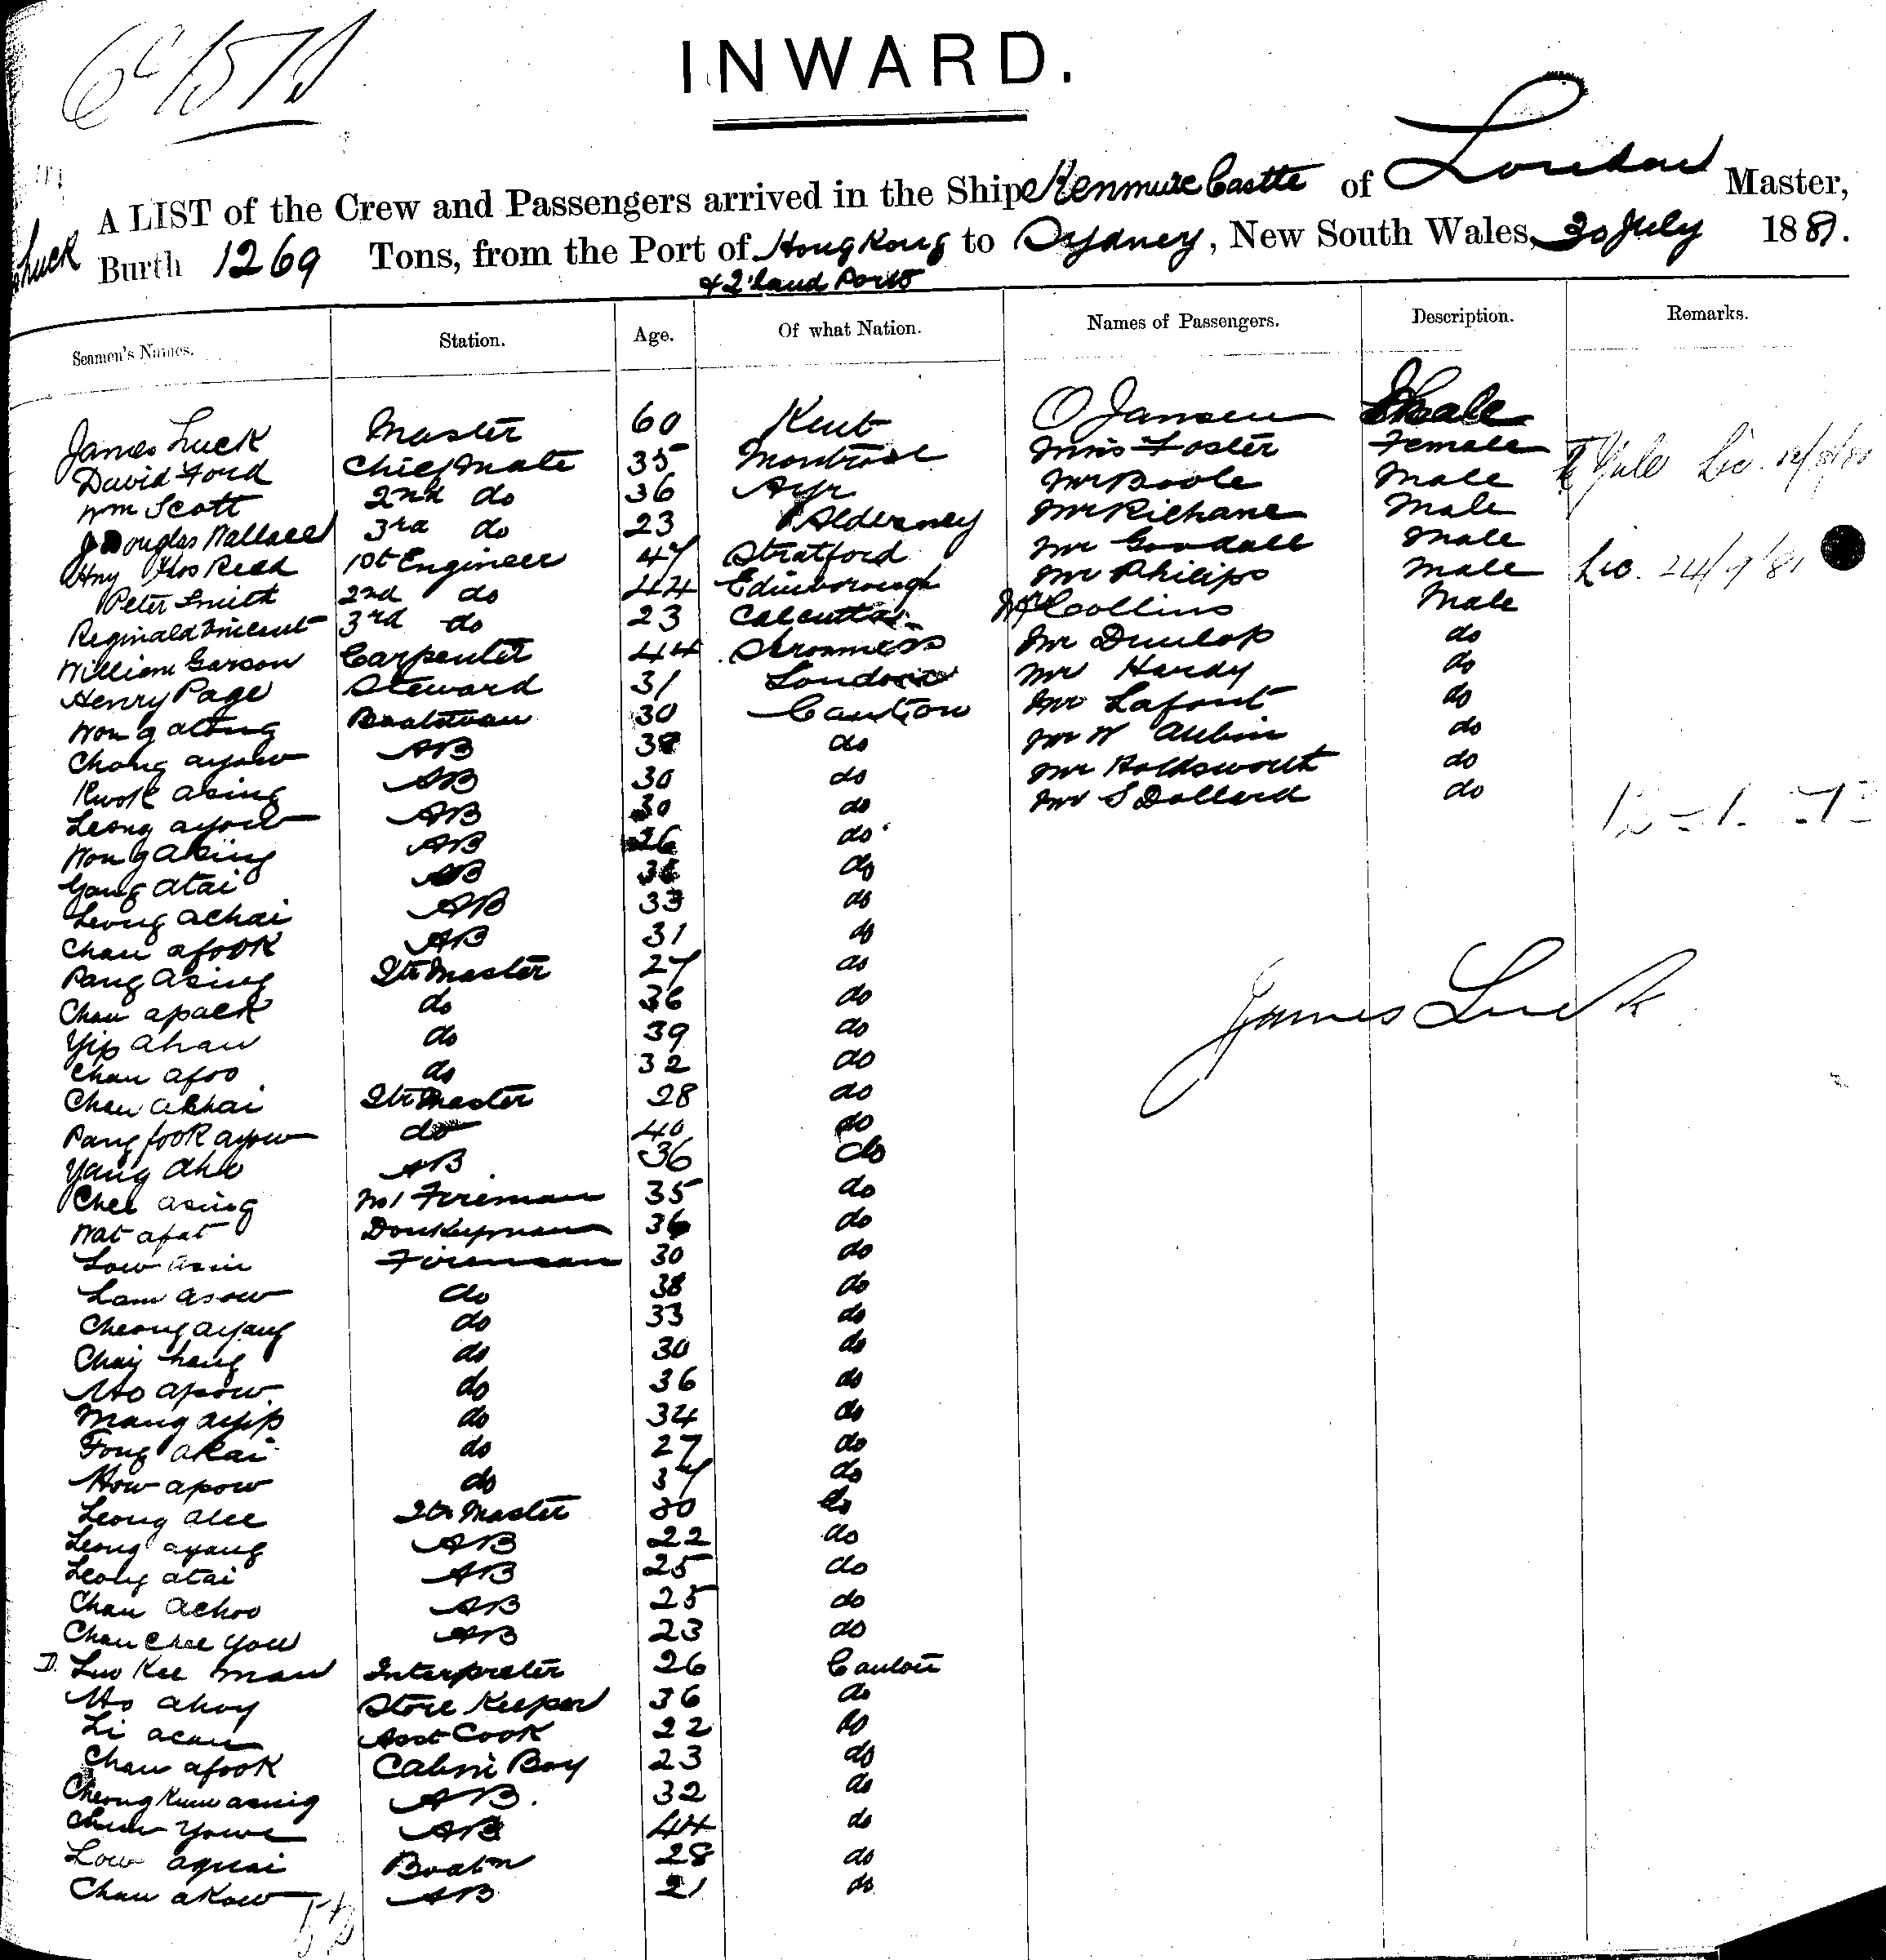 INWARD.
A LIST of the Crew and Passengers arrived in the Ship Kenmure Castle of London Master,
Luck Burth 1269 Tons, from the Port of Hong Kong to Sydney, New South Wales, 30 July 1881.
& Q'land Ports
Seamen's Names. Station. Age. Of what Nation. Names of Passengers. Description. Remarks.
James Luck Master 60 Kent O Jansen Male
David Ford Chief Mate 35 Montrose Miss Foster Female
Wm Scott 2nd do 36 Ayr Mr Poole Male
J Douglas Wallace 3rd do 23 Alderney Mr Richane Male
Hny Thos Reed 1st Engineer 47 Stratford Mr Goodall Male
Peter Smith 2nd do 44 Edinborough Mr Philips Male Lic. 24/9/81
Reginald Vincent 3rd do 23 Calcutta Mr Collins Male
William Garson Carpenter 44 Stromness Mr Dunlop do
Henry Page Steward 31 London Mr Hardy do
Wong atong Boatswan 30 Canton Mr Lafont do
Chong ayow AB 38 do Mr W Aubin do
Kwok asing AB 30 do Mr Holdsworth do
Leong ayow AB 30 do Mr S Dollard do
Wong asing AB 26 do
Yong atai AB do
Leong achai AB 33 do
Chau afook AB 31 do
Pang asing Qtr Master 27 do
Chau apack do 36 do
Yip ahau do 39 do
Chau afoo do 32 do
Chau akhai Qtr Master 28 do
Pang fook ayow do 40 do
Yang aho AB 36 do
Chee asing No 1 Fireman 35 do
Wat afat Donkeyman 36 do
Low asin Fireman 30 do
Lam asow do 38 do
Cheong ayang do 33 do
Chay hang do 30 do
Ho apow do 36 do
Mang ayip do 34 do
Fong akai do 27 do
How apow do 37 do
Leong alee Qtr Master 30 do
Leong ayang AB 22 do
Leong atai AB 25 do
Chau achoo AB 25 do
Chau Chee Yow AB 23 do
Luo Kee Man Interpreter 26 Canton
Ho ahoy Store Keeper 36 do
Li acau Asst Cook 22 do
Chau afook Cabin Boy 23 do
Cheong Kum asing AB. 32 do
AB 44 do
Low aquai Boatn 28 do
Chau akow AB 21 do
James Luck